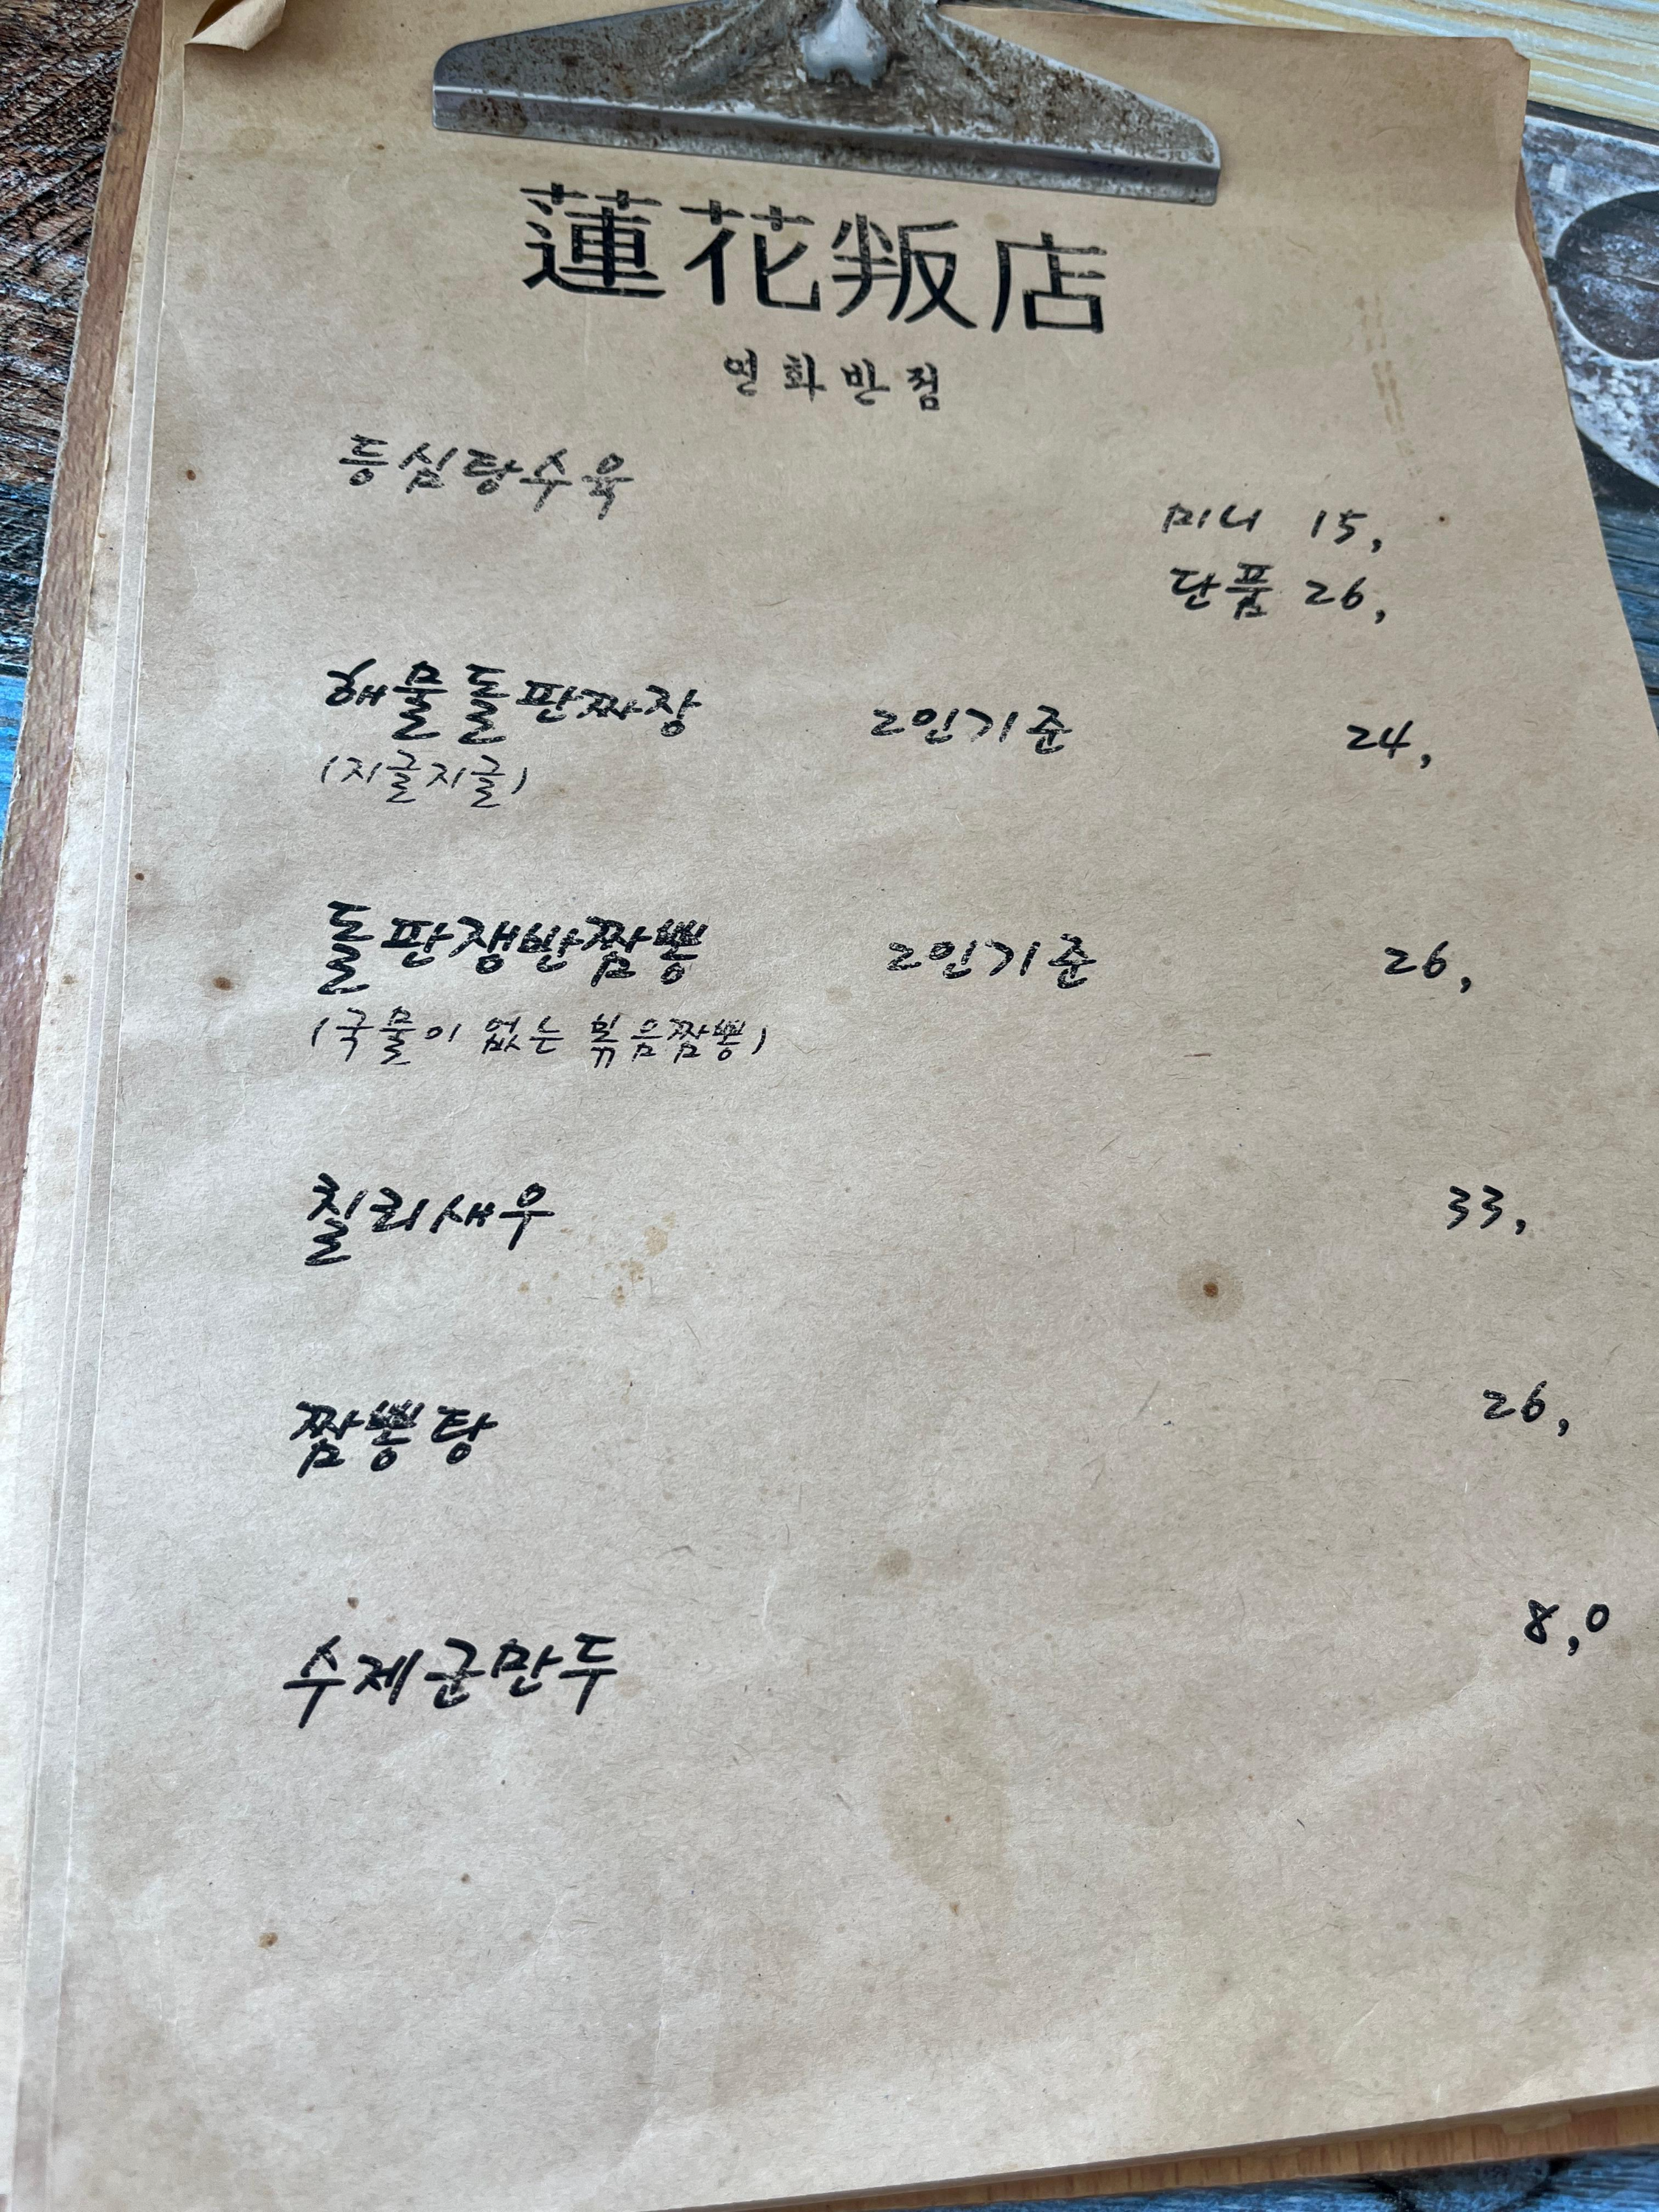 蓮花叛店
연화반점
등심탕수육
미니 15,
단품 26,
해물돌판짜장 2인기준 24,
(지글지글)
돌판쟁반짬뽕 2인기준 26,
(국물이 없는 볶음짬뽕)
칠리새우 33,
짬뽕탕 26,
수제군만두 8,0